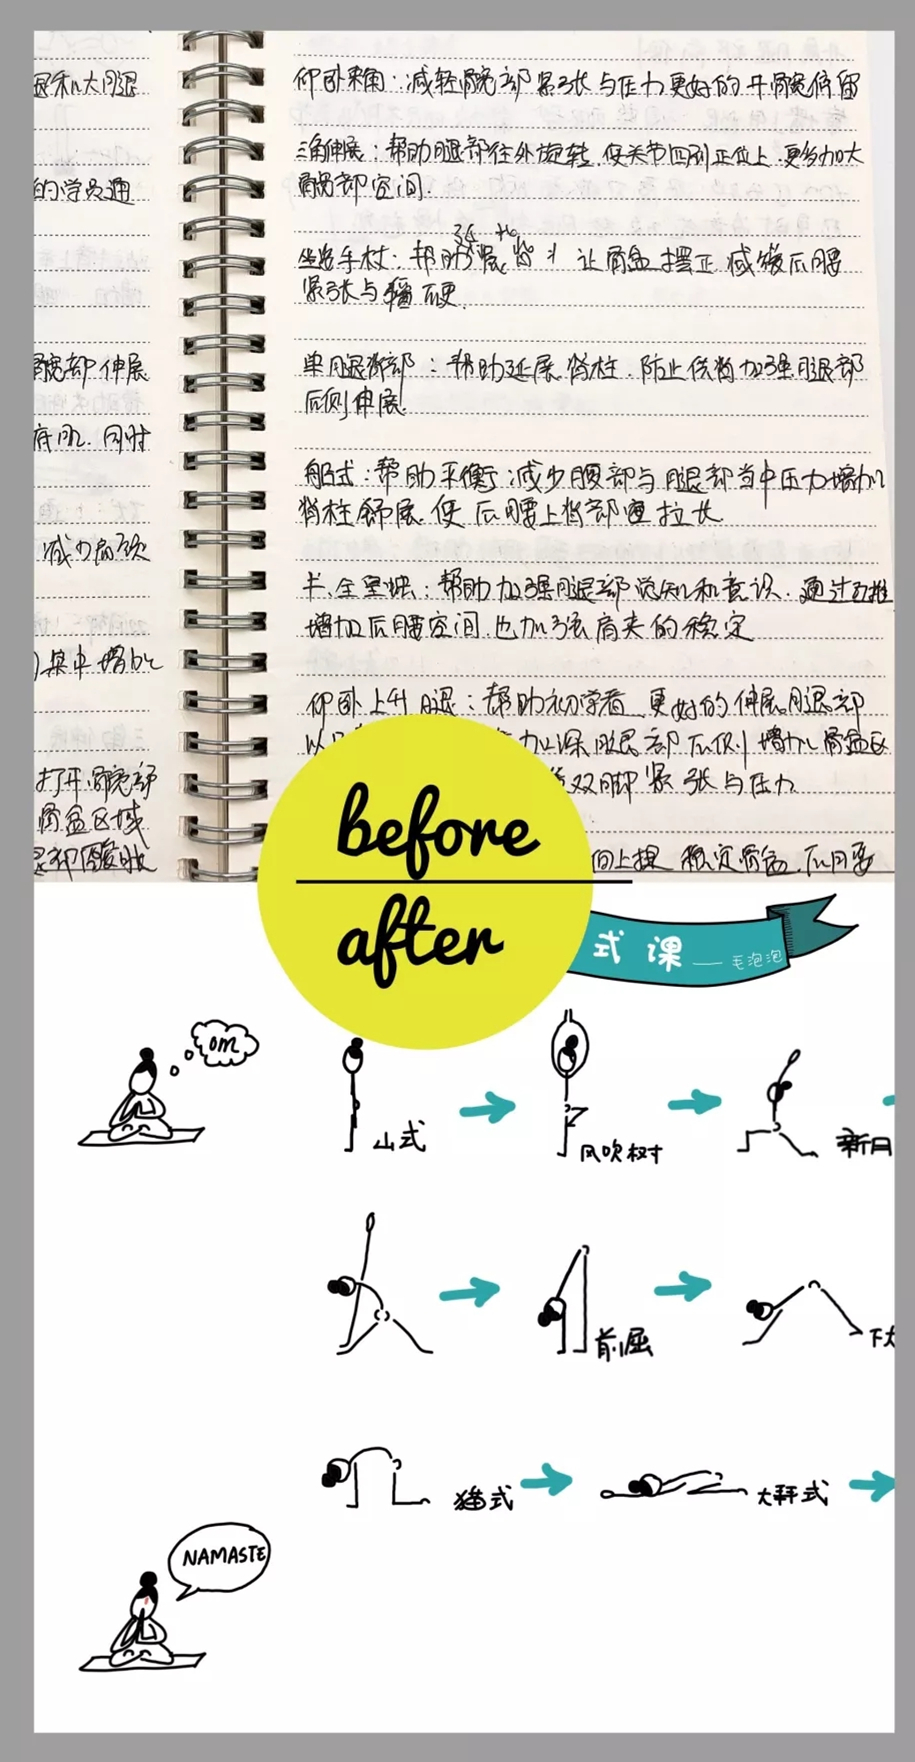 退和大腿
的学员通
髋部伸展
同时
减少
集中增加
打开髋部
骨盆区域
仰卧束角：减轻髋部紧张与压力更好的开髋停留
三角伸展：帮助腿部往外旋转.使关节回到正位上.更多加大
髋部空间.
坐姿手杖：帮助 让骨盆摆正 减缓后腰
紧张与僵硬.
单腿背部：帮助延展脊柱.防止 加强腿部
后侧伸展.
船式：帮助平衡；减少腰部与腿部当中压力增加
脊柱舒展.使后腰上背部 拉长
半.全 ：帮助加强腿部觉知和意识.通过
增加后腰空间.也加强肩夹的稳定
仰卧上升腿：帮助初学者.更好的伸展腿部
腿部后侧 增加骨盆区
双脚紧张与压力
向上提 稳定骨盆.后腰
before
after
式课——毛泡泡
om
山式
风吹树
新月
前屈
下犬
猫式
大拜式
NAMASTE